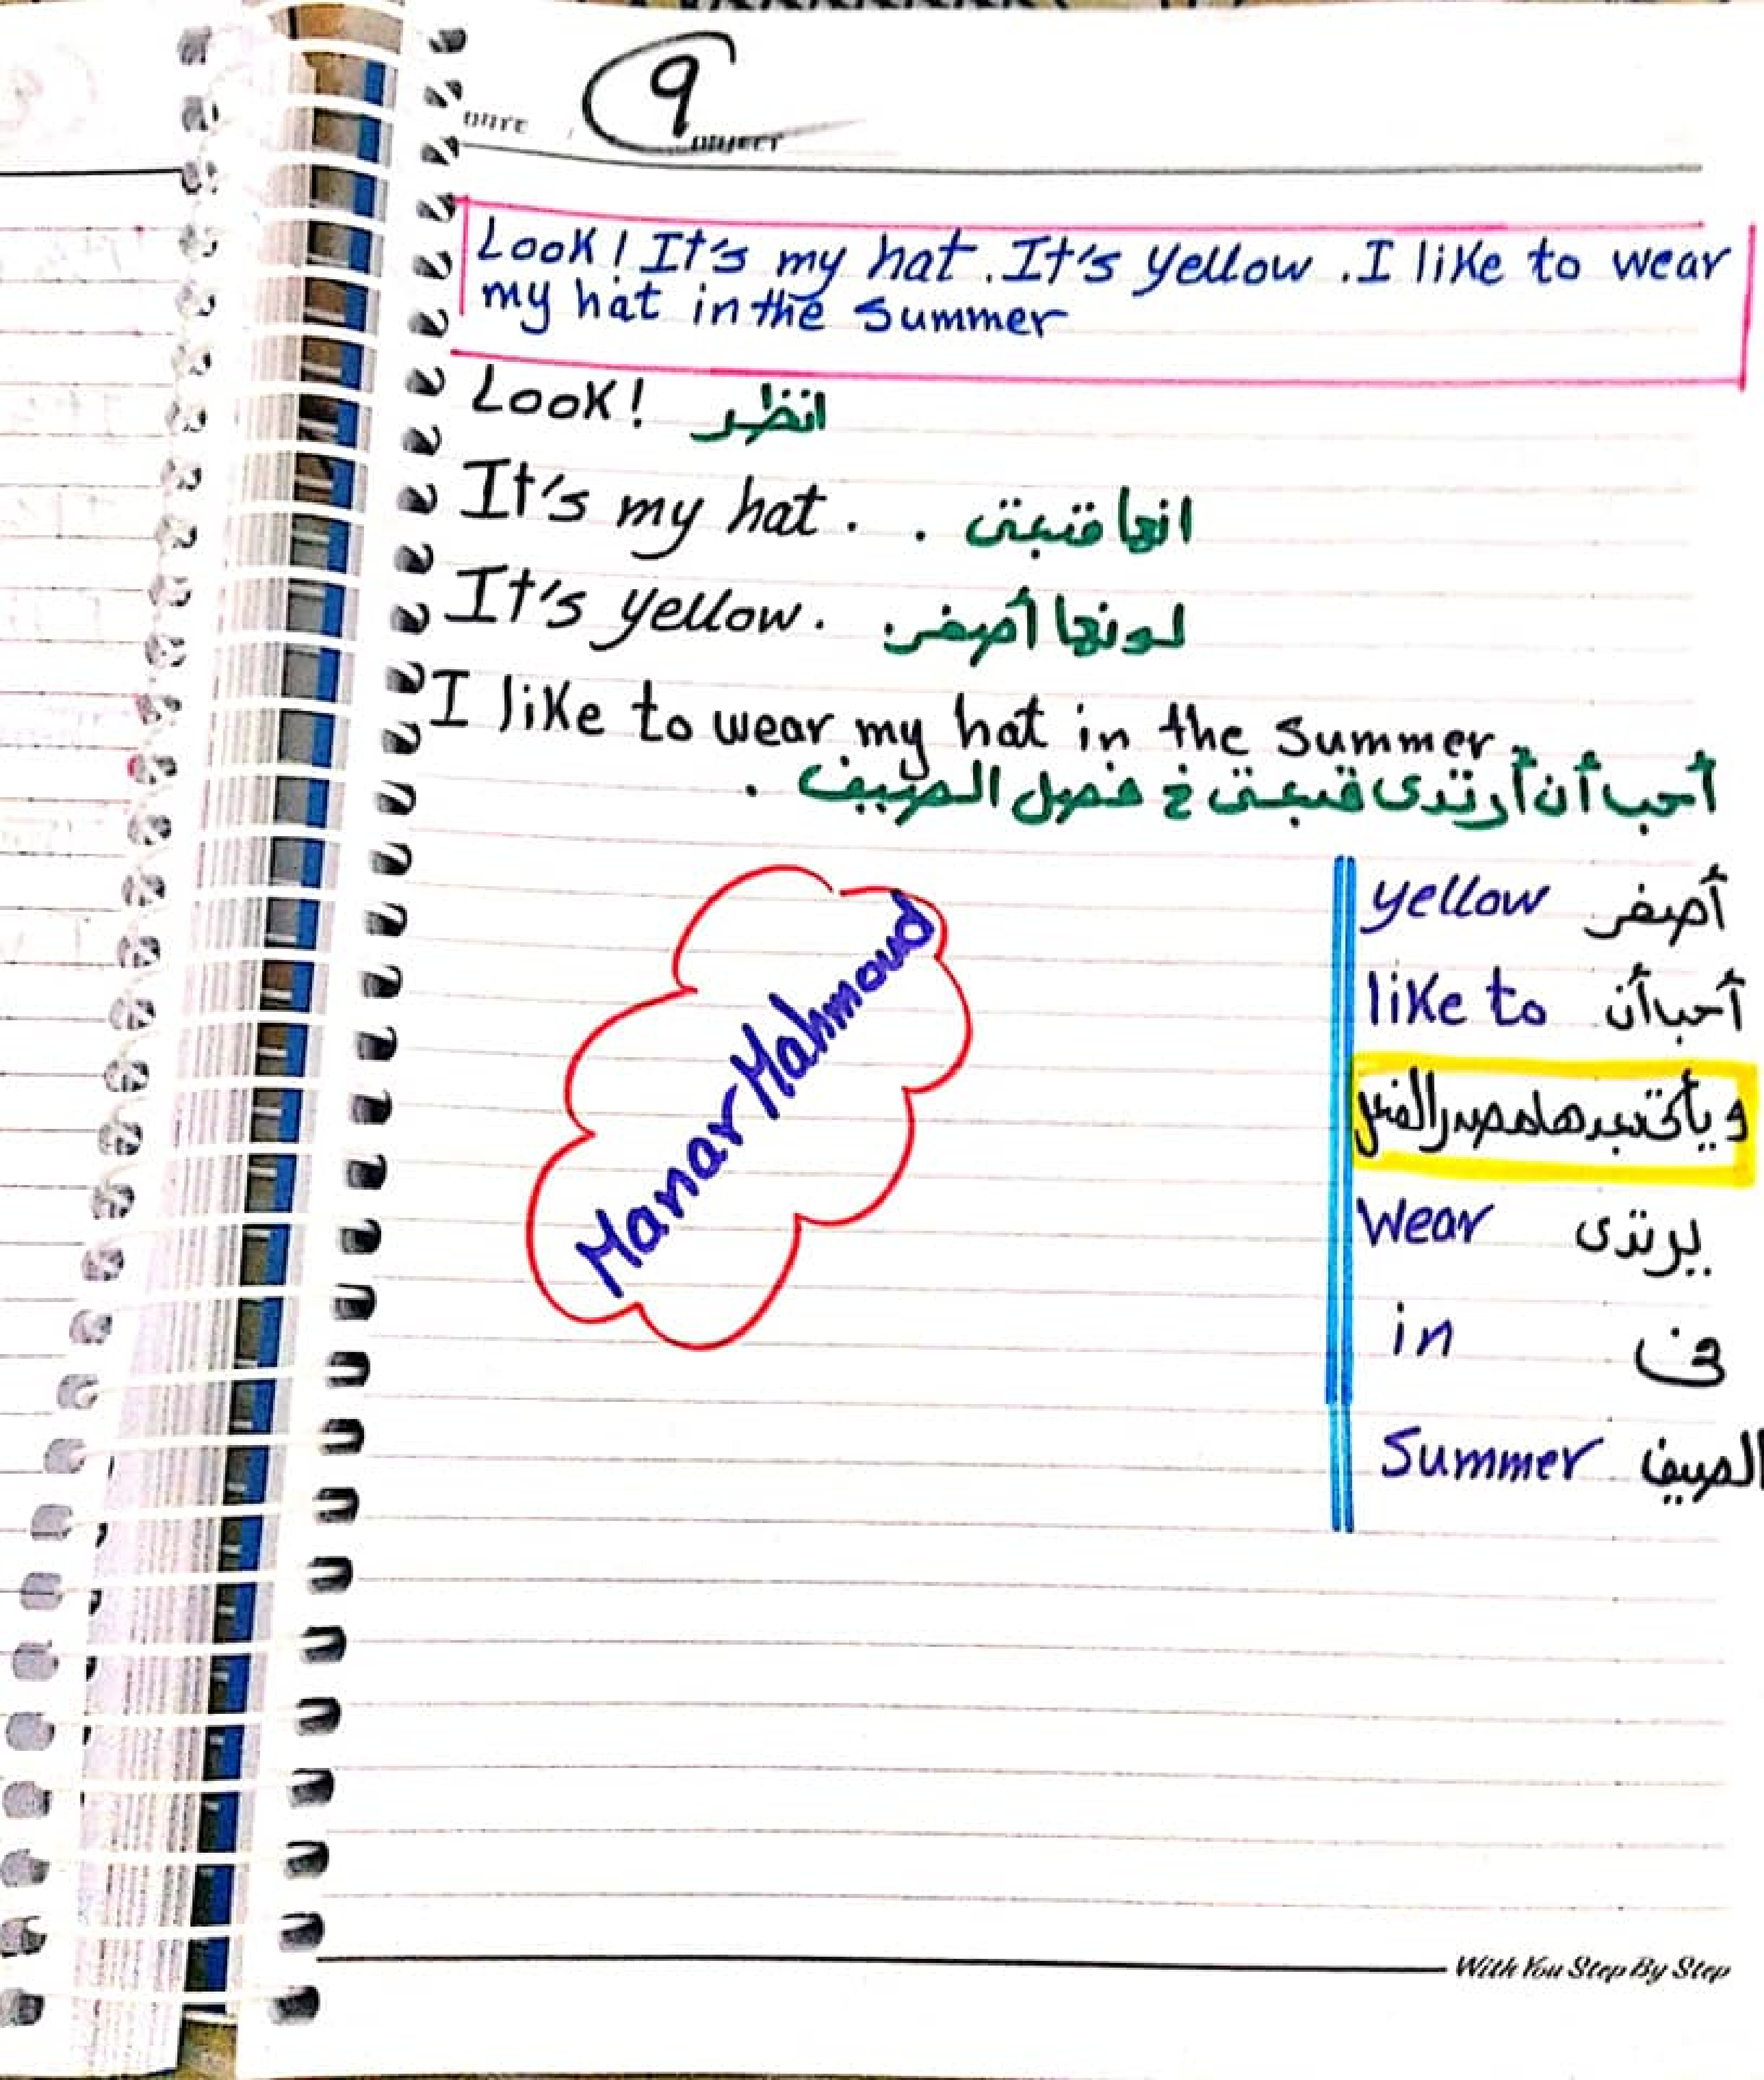 9
DATE
Look! It's my hat. It's yellow. I like to wear
my hat in the summer
Look! انظر
It's my hat. انها قبعتى .
It's yellow. لونها أصفر.
I like to wear my hat in the summer.
أحب أن أرتدى قبعتى في فصل الصيف .
Manar Mahmoud
yellow أصفر
like to أحب أن
ويأتى بعدها مصدر الفعل
Wear يرتدى
in فى
Summer الصيف
With You Step By Step